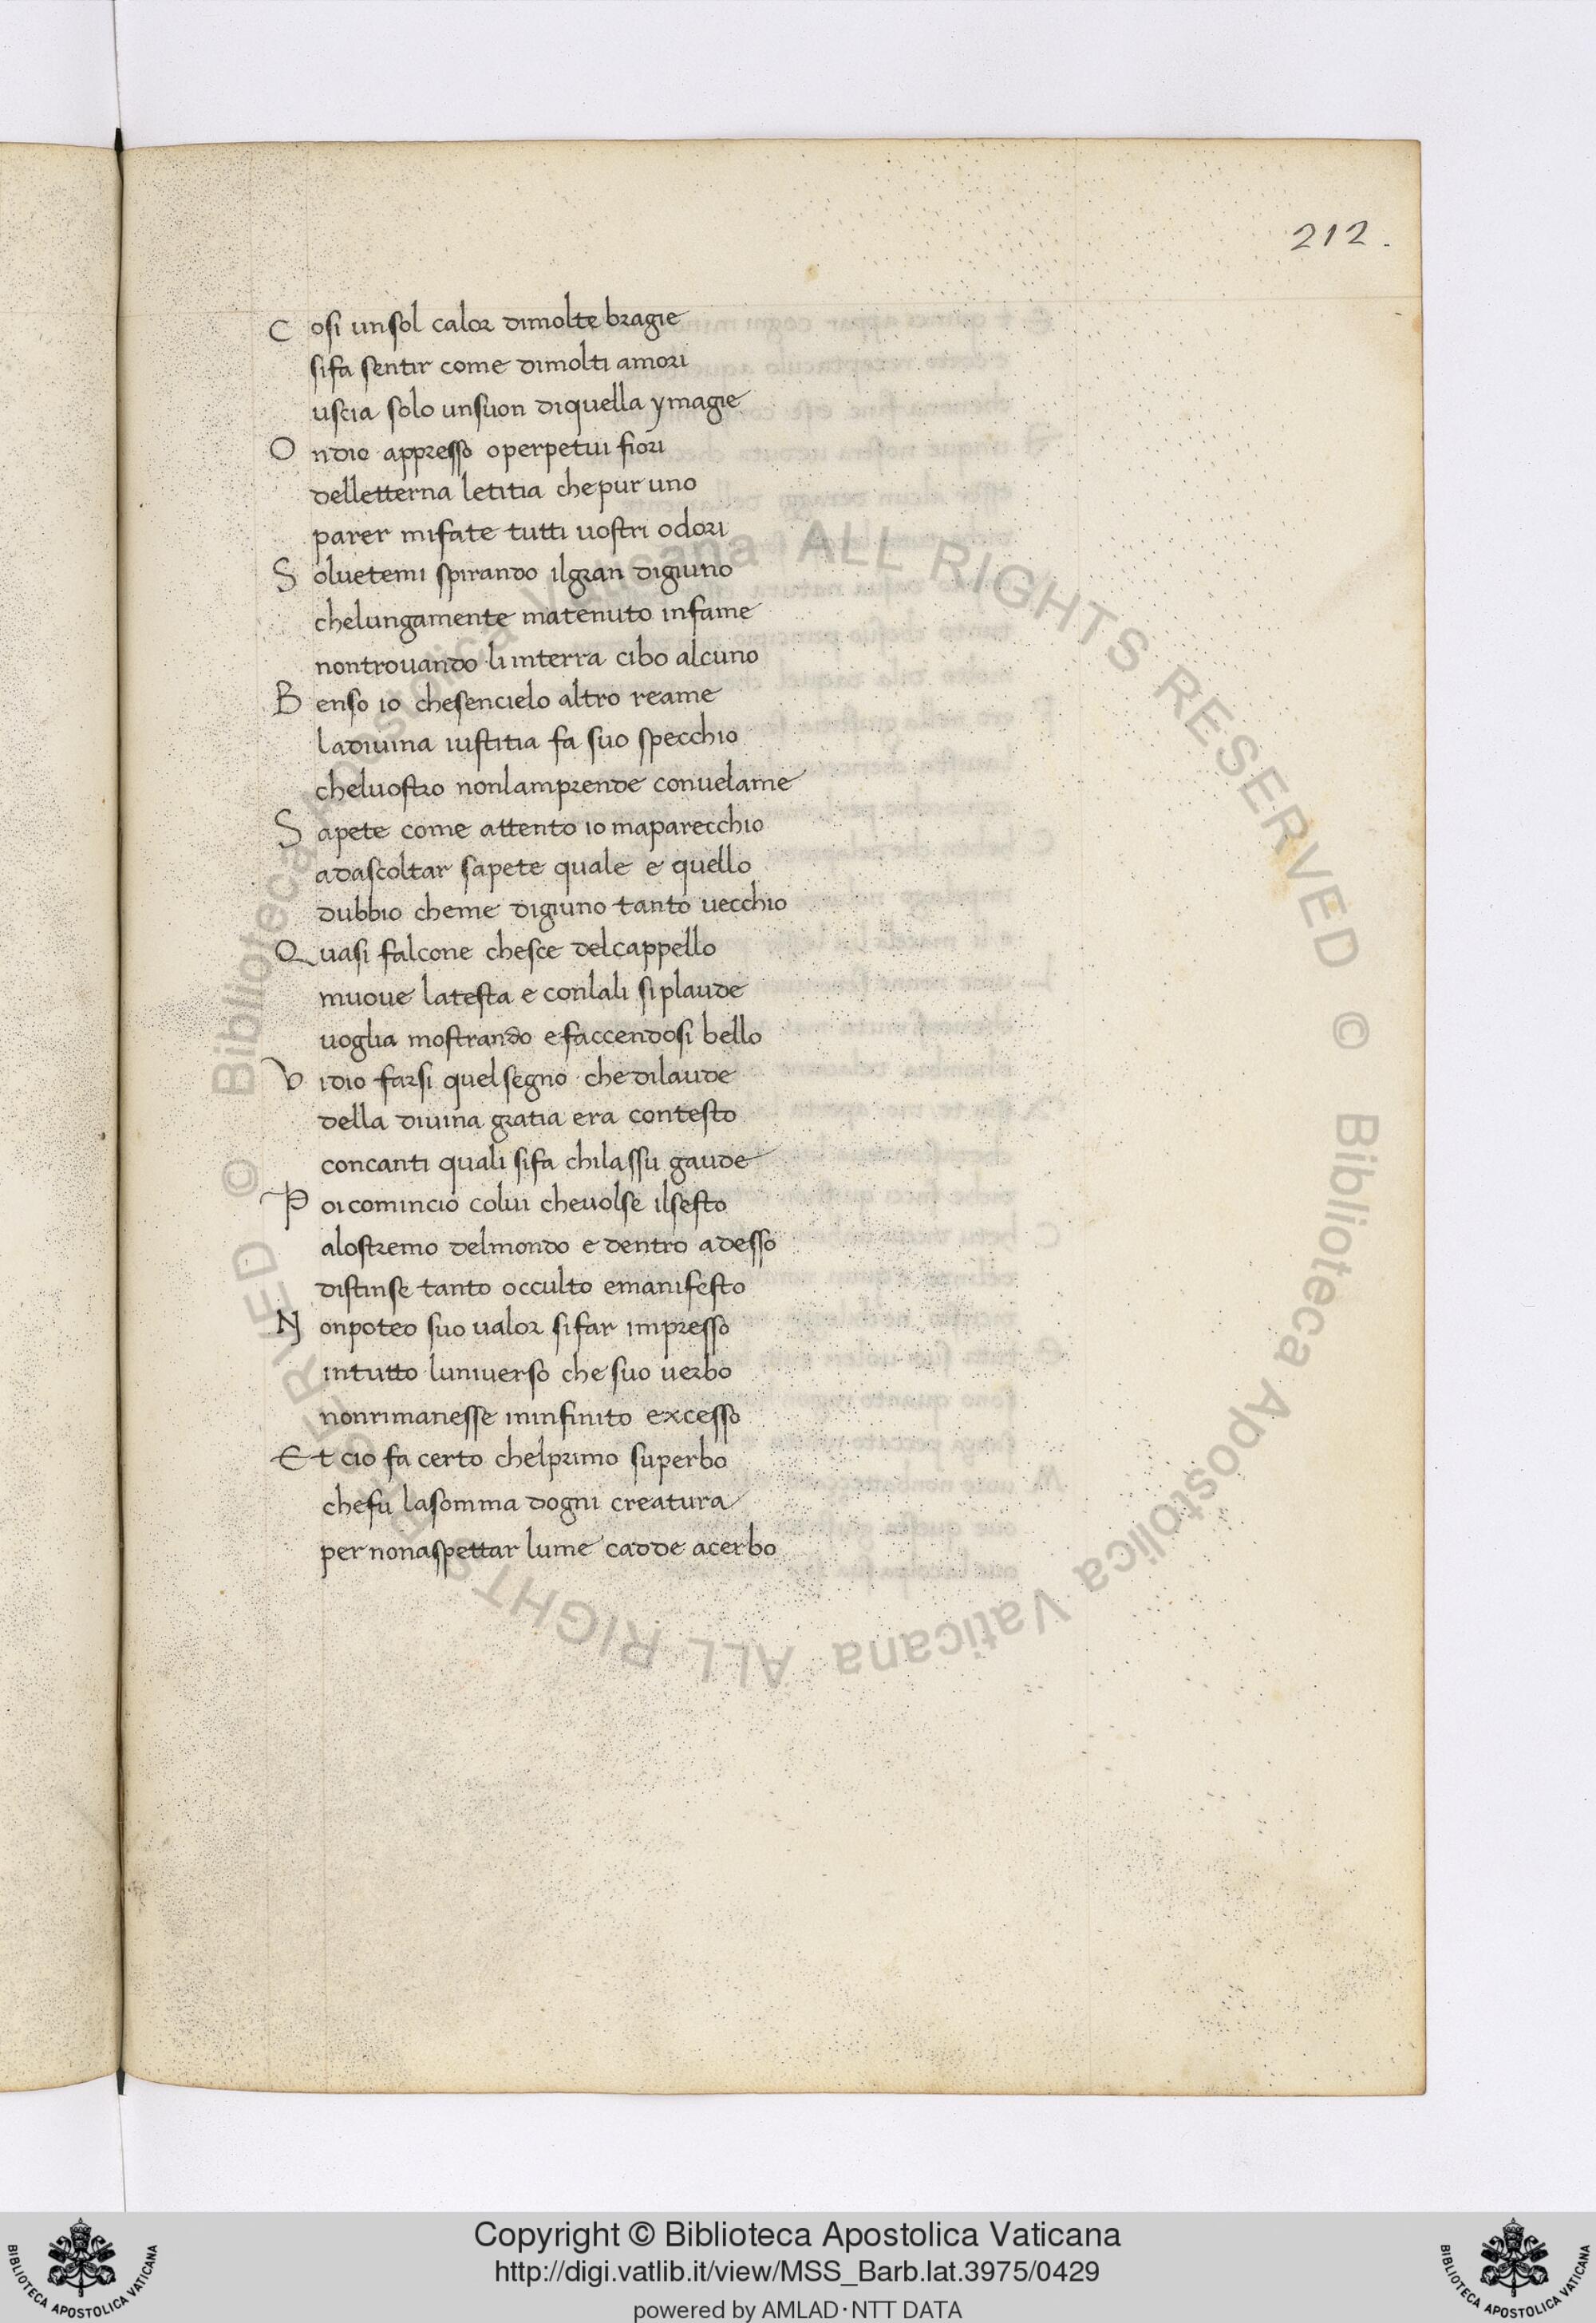 212.
Cosi unsol calor dimolte bragie
sifa sentir come dimolti amori
uscia solo unsuon diquella ymagie
Ondio appresso operpetui fiori
delletterna letitia chepur uno
parer mifate tutti uostri odori
Soluetemi spirando ilgran digiuno
chelungamente matenuto infame
nontrouando li interra cibo alcuno
Benso io chesencielo altro reame
ladiuina iustitia fa suo specchio
cheluostro nonlamprende conuelame
Sapete come attento io maparecchio
adascoltar sapete quale e quello
dubbio cheme digiuno tanto uecchio
Quasi falcone chesce delcappello
muoue latesta e conlali siplaude
uoglia mostrando efaccendosi bello
Vidio farsi quelsegno che dilaude
della diuina gratia era contesto
concanti quali sifa chilassu gaude
Poi comincio colui cheuolse ilsesto
alostremo delmondo e dentro adesso
distinse tanto occulto emanifesto
Nonpoteo suo ualor sifar impresso
intutto luniuerso che suo uerbo
nonrimanesse ininfinito excesso
Et cio fa certo chelprimo superbo
chefu lasomma dogni creatura
per nonaspettar lume cadde acerbo
© Biblioteca Apostolica Vaticana ALL RIGHTS RESERVED © Biblioteca Apostolica Vaticana ALL RIGHTS RESERVED
Copyright © Biblioteca Apostolica Vaticana
http://digi.vatlib.it/view/MSS_Barb.lat.3975/0429
powered by AMLAD·NTT DATA
BIBLIOTECA APOSTOLICA VATICANA
BIBLIOTECA APOSTOLICA VATICANA